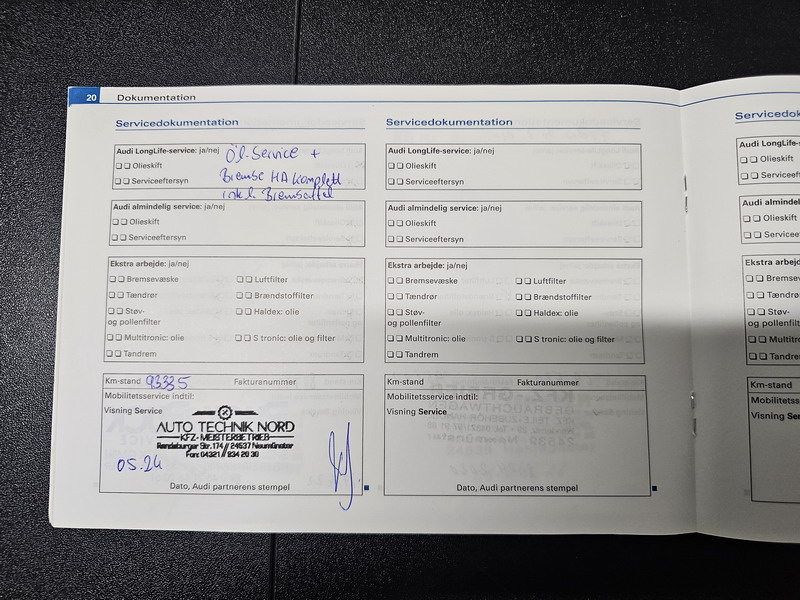 20 Dokumentation
Servicedokumentation
Audi LongLife-service: ja/nej
Öl-Service +
Olieskift
Bremse HA Komplett
Serviceeftersyn
inkl. Bremsattel
Audi almindelig service: ja/nej
Olieskift
Serviceeftersyn
Ekstra arbejde: ja/nej
Bremsevæske Luftfilter
Tændrør Brændstoffilter
Støv- Haldex: olie
og pollenfilter
Multitronic: olie S tronic: olie og filter
Tandrem
Km-stand 93335 Fakturanummer
Mobilitetsservice indtil:
Visning Service
AUTO TECHNIK NORD
KFZ-MEISTERBETRIEB
Rendsburger Str. 174 // 24537 Neumünster
Fon: 04321 // 834 20 30
05.24
Dato, Audi partnerens stempel
Servicedokumentation
Audi LongLife-service: ja/nej
Olieskift
Serviceeftersyn
Audi almindelig service: ja/nej
Olieskift
Serviceeftersyn
Ekstra arbejde: ja/nej
Bremsevæske Luftfilter
Tændrør Brændstoffilter
Støv- Haldex: olie
og pollenfilter
Multitronic: olie S tronic: olie og filter
Tandrem
Km-stand Fakturanummer
Mobilitetsservice indtil:
Visning Service
Dato, Audi partnerens stempel
Servicedok
Audi LongLife-se
Olieskift
Serviceeft
Audi almindelig
Olieskift
Servicee
Ekstra arbejd
Bremsev
Tændrø
Støv-
og pollenfilte
Multitro
Tandre
Km-stand
Mobilitetss
Visning Se